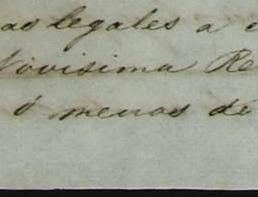 as legales a
Novisima Re
ó menos de